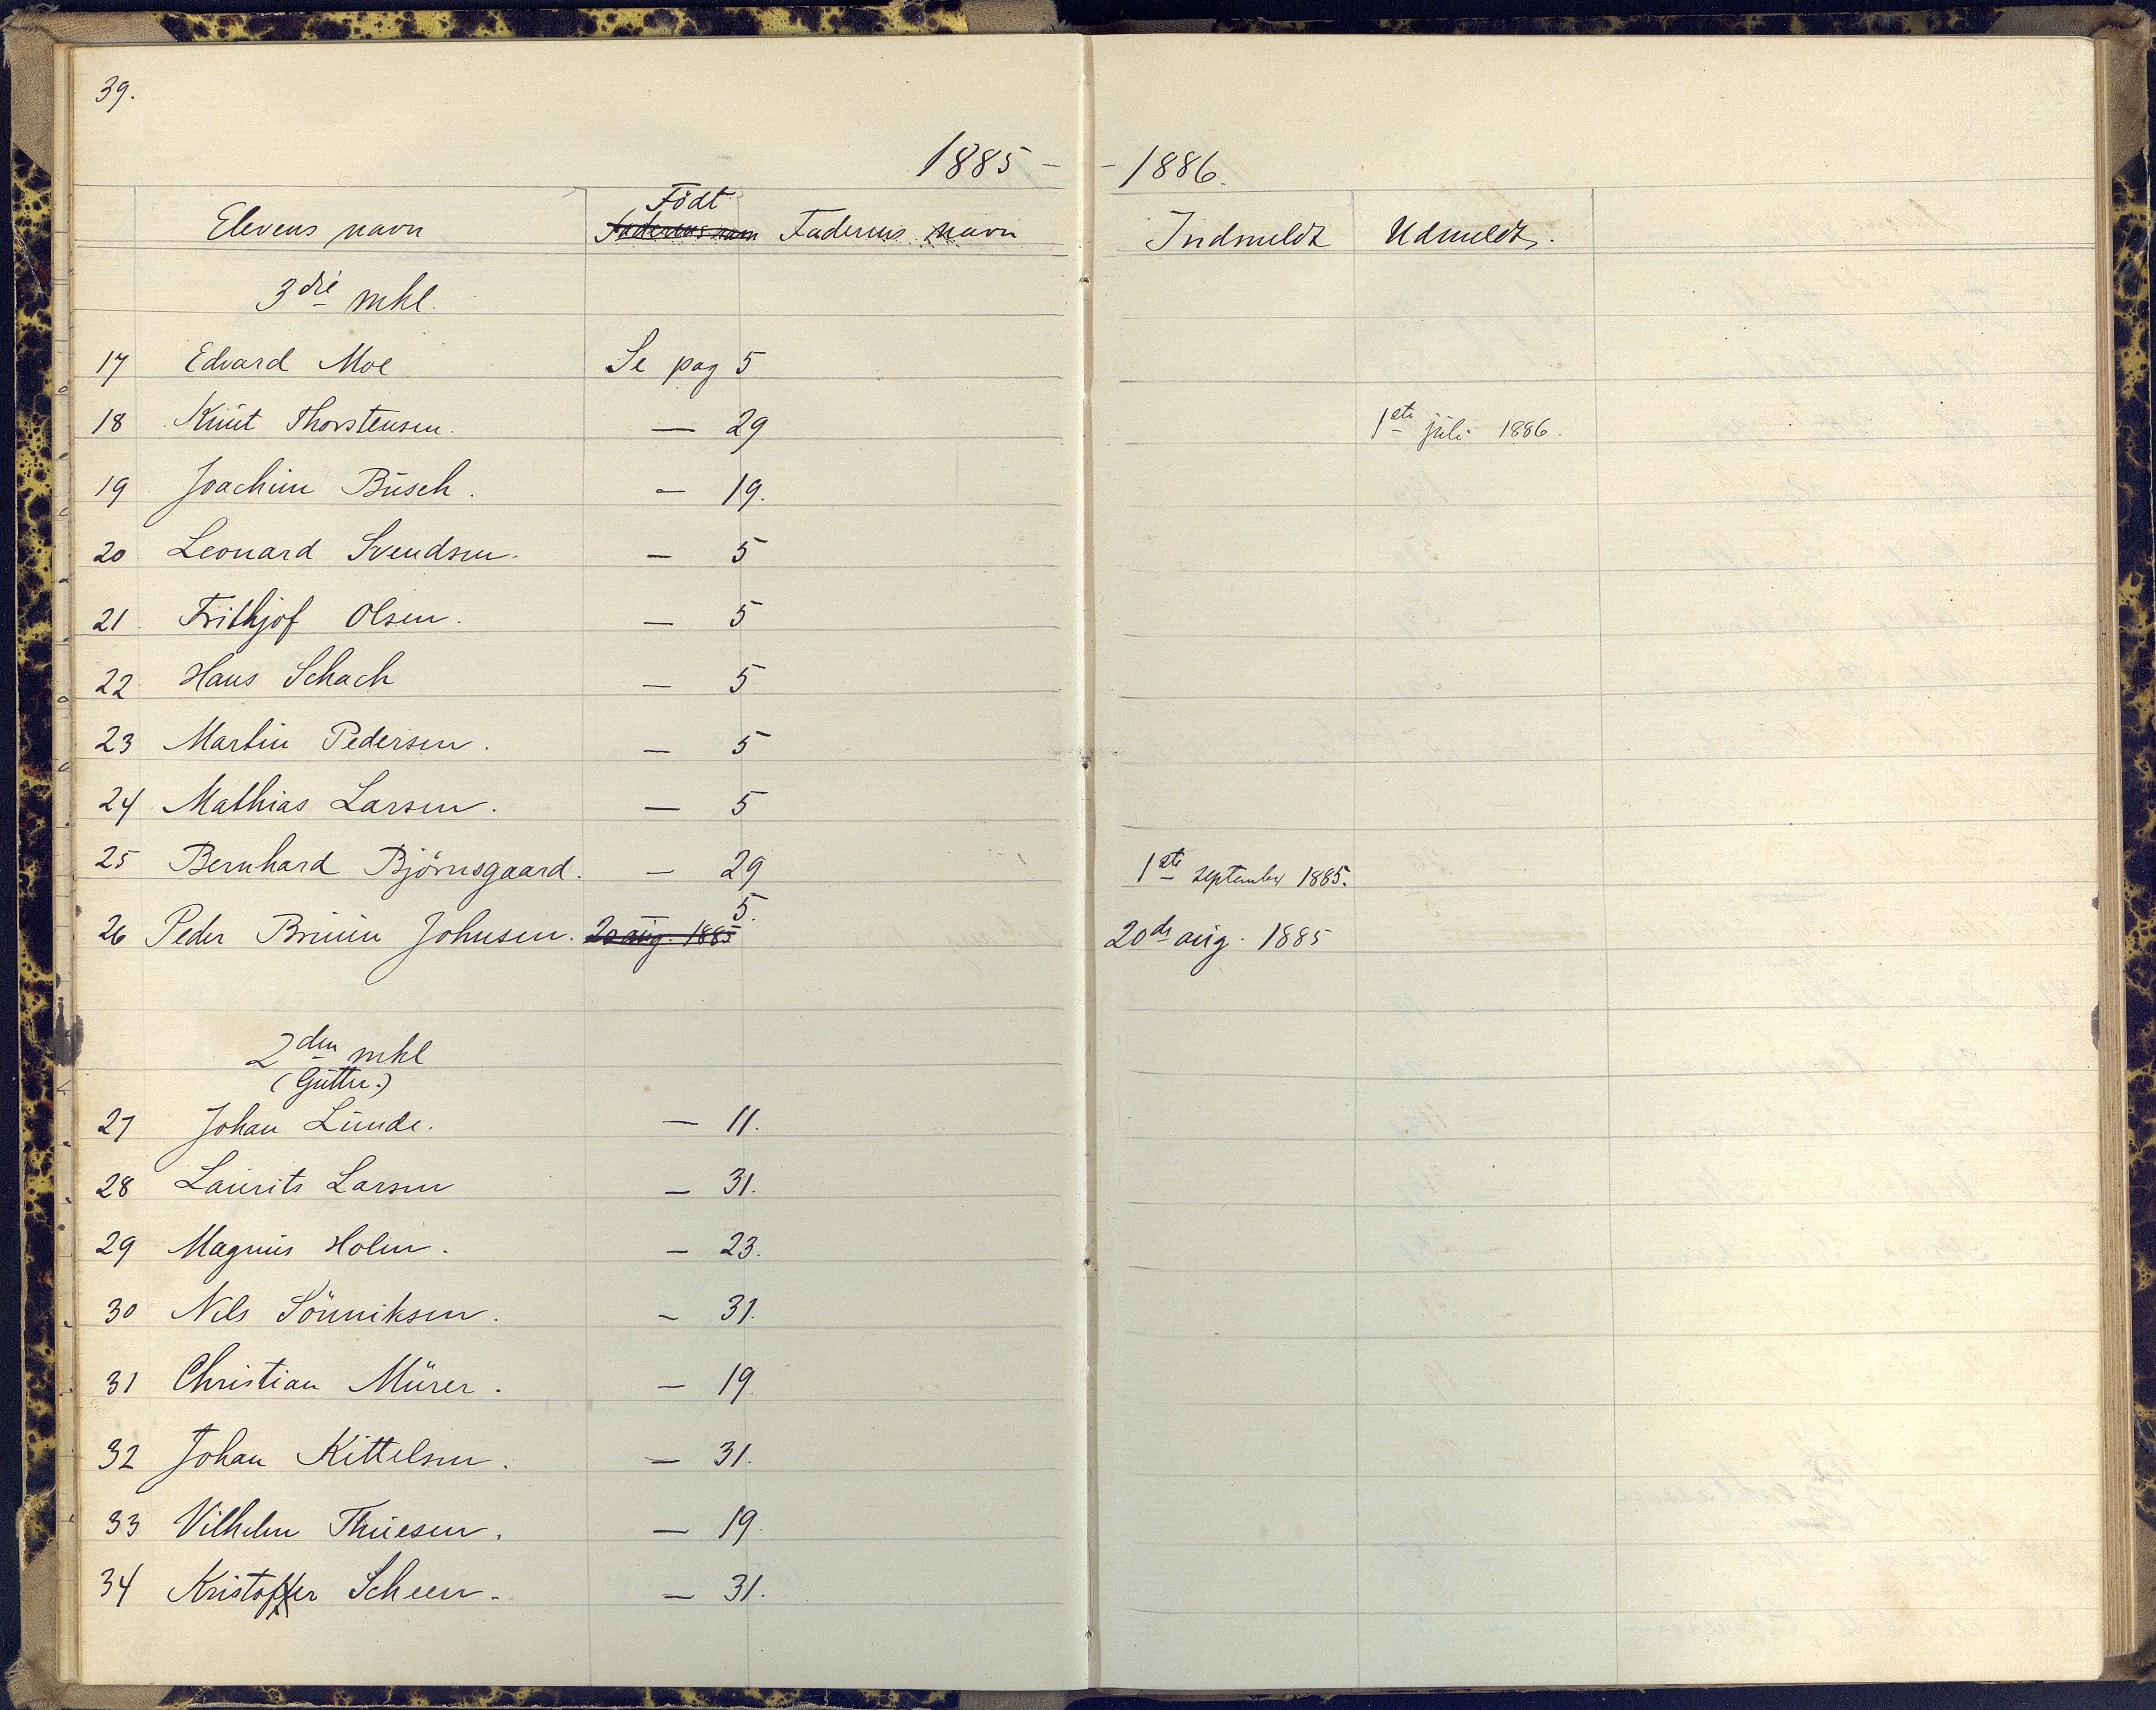 39.
1885 - - 1886.
Födt
Elevens navn Faderens navn Faderens navn Indmeldt Udmeldt.
3die mkl.
17 Edvard Moe Se pag 5
18 Knut Thorstensen. — 29 1ste juli 1886.
19 Joachim Busch. — 19.
20 Leonard Svendsen. — 5
21 Frithjof Olsen. — 5
22 Hans Schach — 5
23 Martin Pedersen. — 5
24 Mathias Larsen. — 5
25 Bernhard Björnsgaard. — 29 1ste september 1885.
26 Peder Bruun Johnsen. 20 aug. 1885 — 5. 20de aug. 1885
2den mkl
(Gutter.)
27 Johan Lunde. — 11.
28 Laurits Larsen — 31.
29 Magnus Holm. — 23.
30 Nils Sönniksen. — 31.
31 Christian Mürer. — 19.
32 Johan Kittelsen. — 31.
33 Vilhelm Thuesen. — 19.
34 Kristoffer Scheen. — 31.